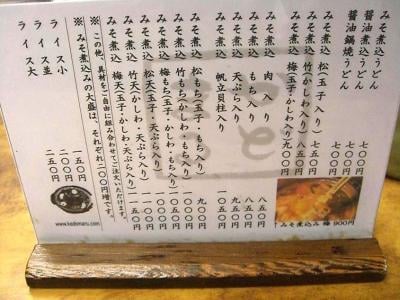 みそ煮込うどん 七〇〇円
醤油煮込うどん 七〇〇円
醤油鍋焼うどん 七〇〇円
みそ煮込 松(玉子入り) 七五〇円
みそ煮込 竹(かしわ入り) 八五〇円
みそ煮込 梅(玉子・かしわ入り) 九〇〇円
みそ煮込 肉入り 八五〇円
みそ煮込 もち入り 八五〇円
みそ煮込 天ぷら入り 九五〇円
みそ煮込 帆立貝柱入り 一〇五〇円
みそ煮込 松もち(玉子・もち入り) 九〇〇円
みそ煮込 竹もち(かしわ・もち入り) 一〇〇〇円
みそ煮込 梅もち(玉子・かしわ・もち入り) 一〇五〇円
みそ煮込 松天(玉子・天ぷら入り) 一〇〇〇円
みそ煮込 竹天(かしわ・天ぷら入り) 一一〇〇円
みそ煮込 梅天(玉子・かしわ・天ぷら入り) 一一五〇円
※この他、具材をご自由に組み合わせてご注文いただけます。
※みそ煮込みの大盛は、それぞれ二〇〇円増です。
ライス小 一五〇円
ライス並 二〇〇円
ライス大 二五〇円
www.kadomaru.com
↑みそ煮込み 梅 900円